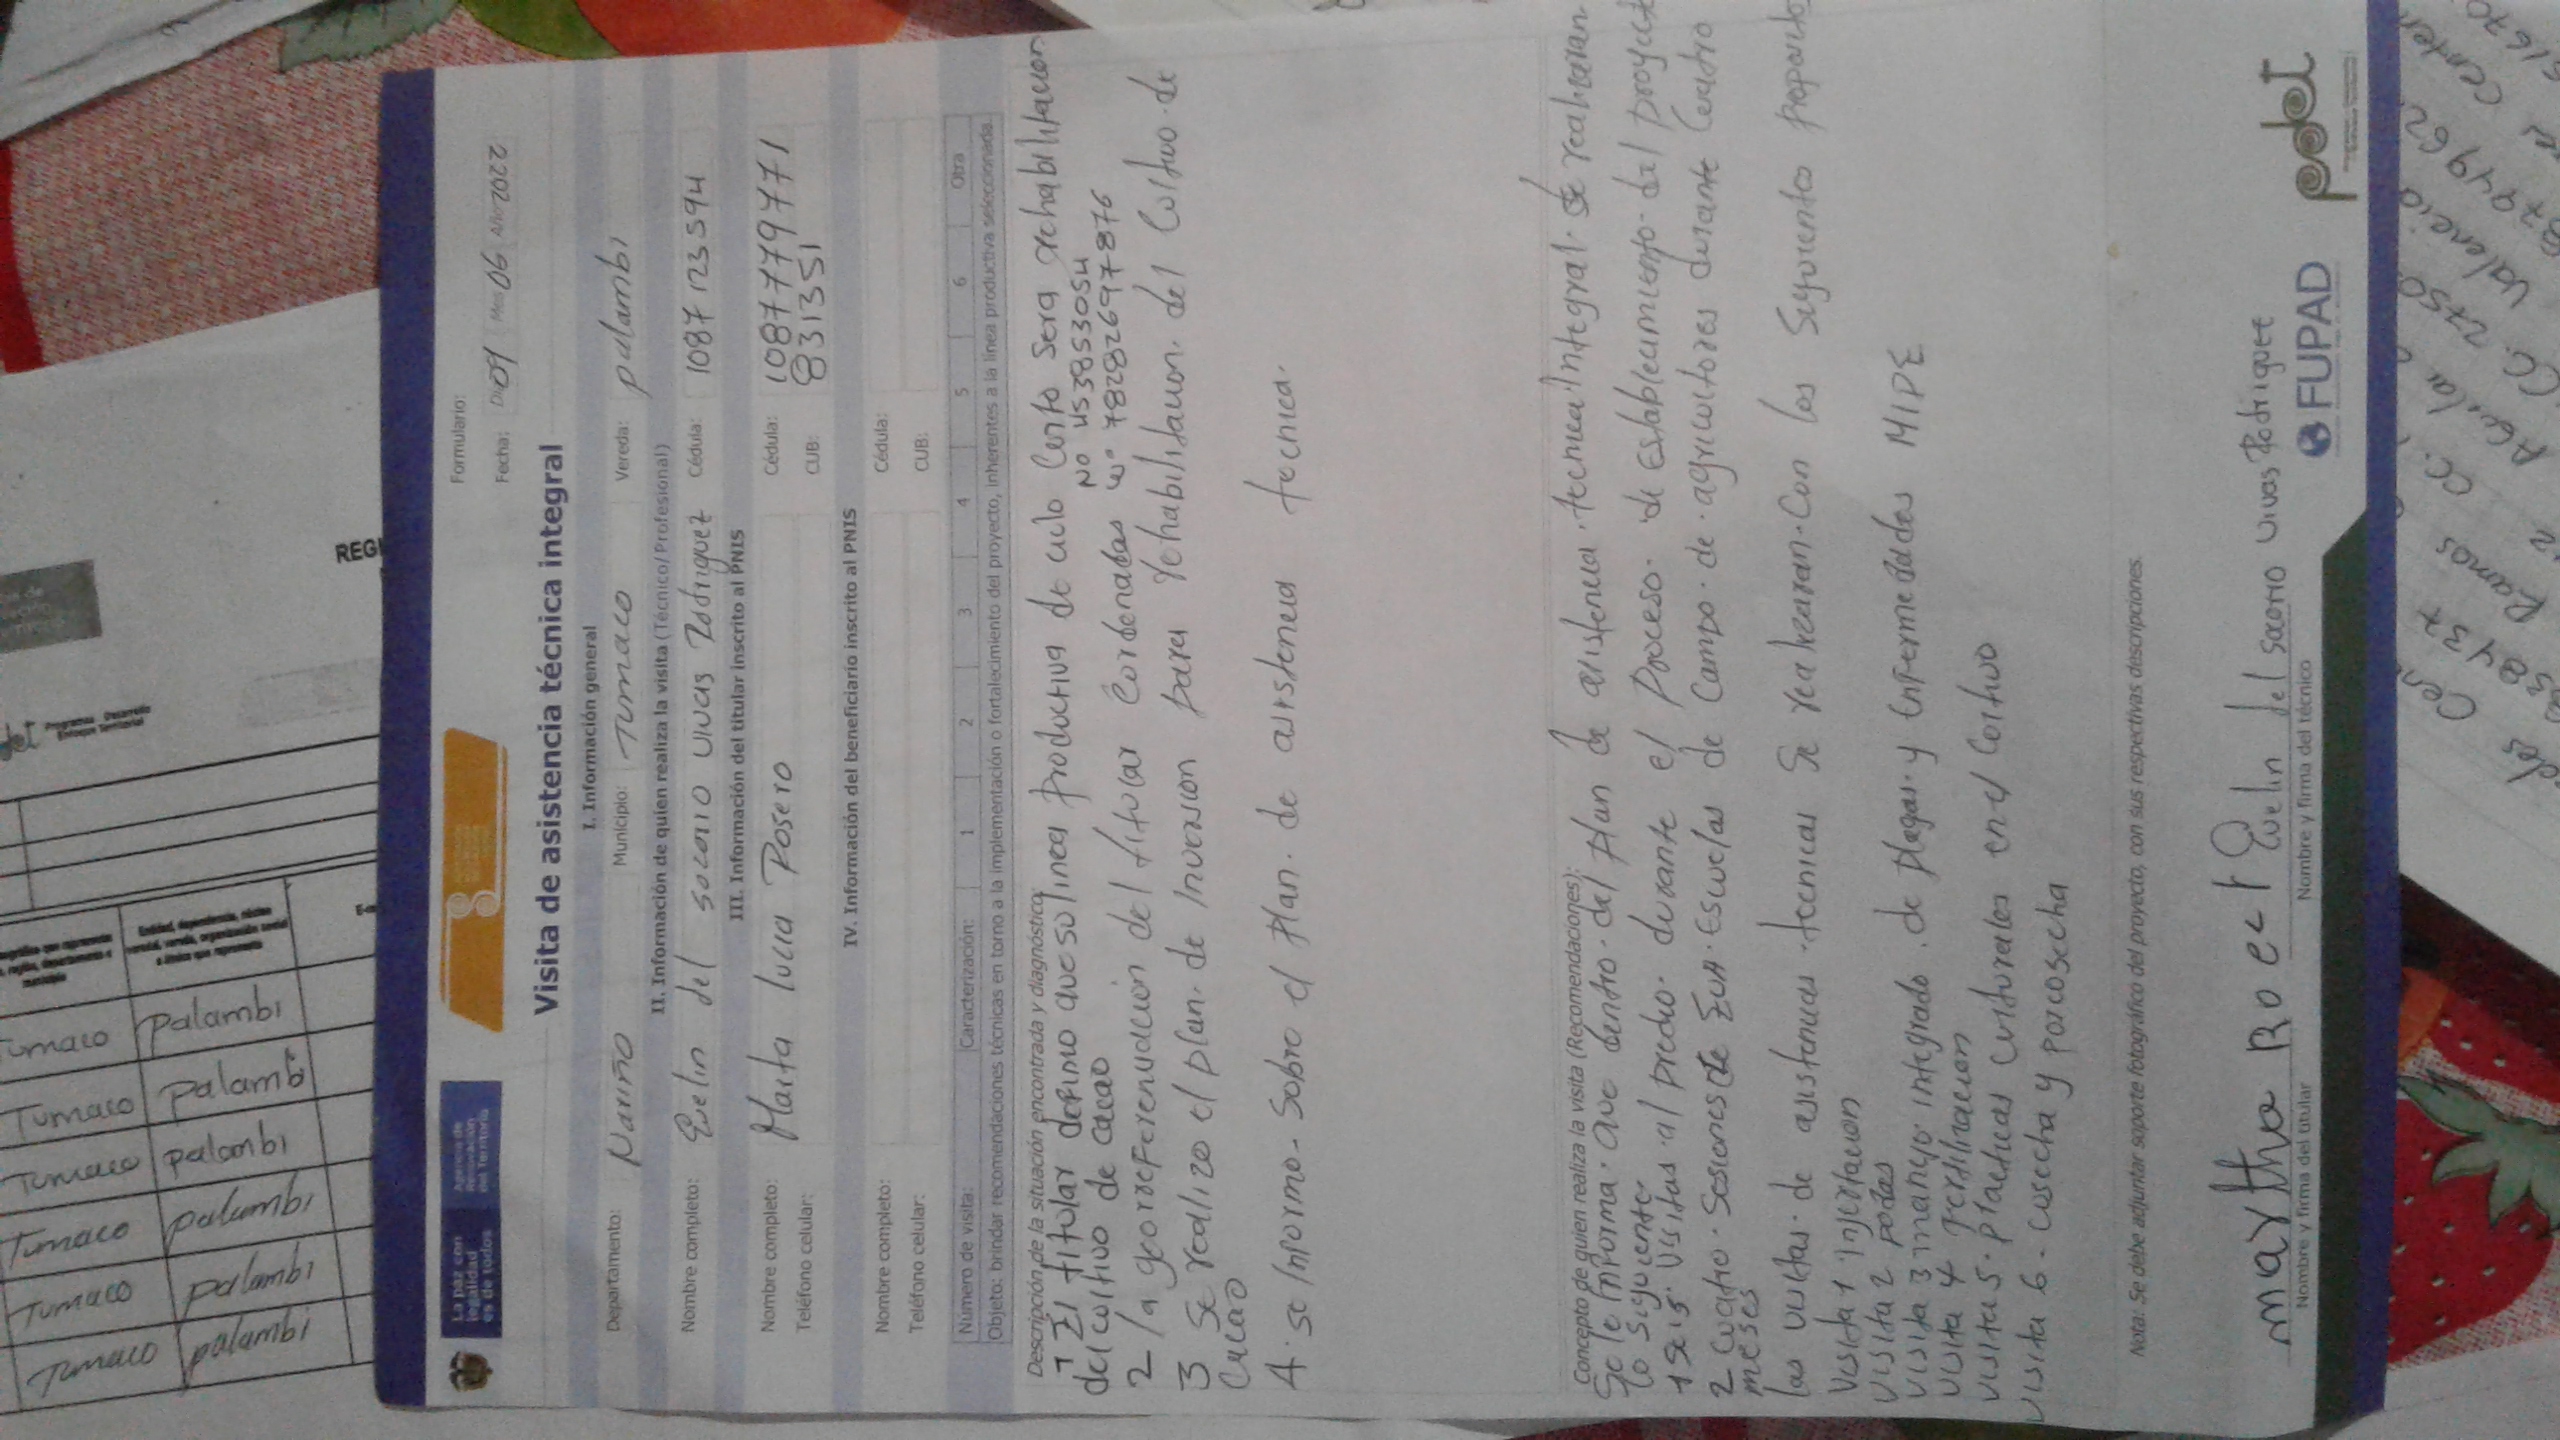 La paz con
legalidad
es de todos
Agencia de
Renovación
del Territorio
Formulario:
Fecha: Día 01 Mes 06 Año 2022
Visita de asistencia técnica integral
I. Información general
Departamento: Nariño Municipio: Tumaco Vereda: palambi
II. Información de quien realiza la visita (Técnico/Profesional)
Nombre completo: Evelin del socorro vivas Rodriguez Cédula: 1087123594
III. Información del titular inscrito al PNIS
Nombre completo: Marta lucia Rosero Cédula: 1087779771
Teléfono celular: CUB: 831351
IV. Información del beneficiario inscrito al PNIS
Nombre completo: Cédula:
Teléfono celular: CUB:
Número de visita: Caracterización: 1 2 3 4 5 6 Otra
Objeto: brindar recomendaciones técnicas en torno a la implementación o fortalecimiento del proyecto, inherentes a la línea productiva seleccionada.
Descripción de la situación encontrada y diagnóstico:
1 El titular definio que su linea productiva de ciclo corto sera rehabilitacion
del cultivo de cacao
2 la georeferenciacion del titular cordenadas N° 1.538533054 W° 782826697876
3 Se realizo el plan. de inversion para rehabilitacion. del cultivo. de
Cacao
4. se informo. Sobre el plan. de asistencia tecnica.
Concepto de quien realiza la visita (Recomendaciones):
Se le informa. que dentro. del plan de asistencia. tecnica integral. se realizaran
lo siguiente.
1 seis. visitas. al predio. durante el proceso. de establecimiento. del proyecto
2 cuatro. sesiones de EcA. Escuelas de campo. de. agricultores durante cuatro
meses
las visitas. de asistencias. tecnicas se realizaran. con los siguientes
visita 1 injertacion
visita 2 podas
visita 3 manejo. integrado. de plagas. y enfermedades MIPE
visita 4 fertilizacion
visita 5. practicas culturales en el cultivo
visita 6. cosecha y poscosecha
Nota: Se debe adjuntar soporte fotográfico del proyecto, con sus respectivas descripciones.
martha Ro
Nombre y firma del titular
Evelin del socorro vivas Rodriguez
Nombre y firma del técnico
FUPAD
pdet
REGI
Tumaco palambi
Tumaco palambi
Tumaco palambi
Tumaco palambi
Tumaco palambi
Tumaco palambi